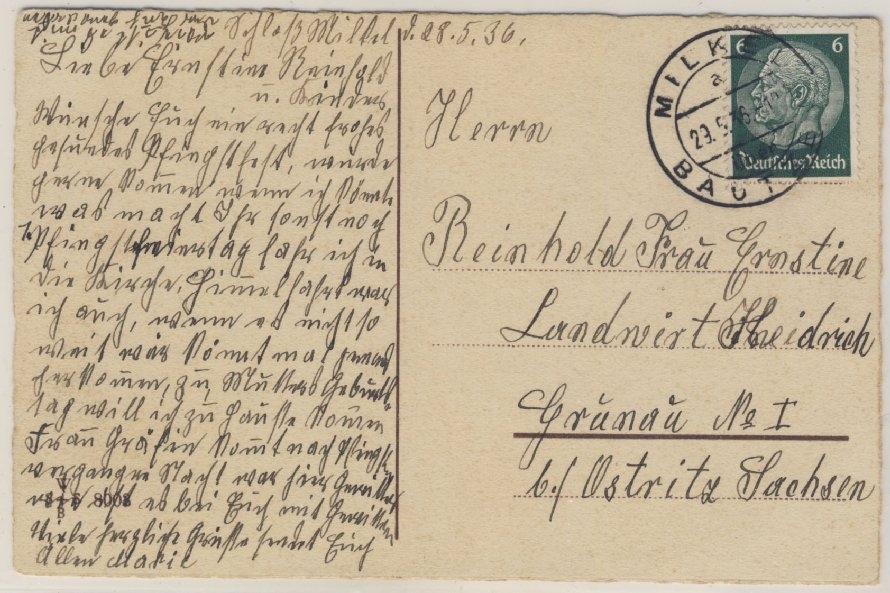 Schloß Milkel d. 28.5.36.
Liebe Ernstine Reinhold
u. Kinder
Wünsche Euch ein recht frohes
gesundes Pfingstfest, würde
gerne kommen wenn ich könnte
was macht Ihr sonst noch
1. Pfingstfeiertag fahr ich in
die Kirche, Himmelfahrt war
ich auch, wenn es nicht so
weit wär könnt mal jemand
herkommen, zu Mutters Geburts-
tag will ich zu Hause kommen
Frau Gräfin kommt nach Pfingsten
vergangne Nacht war hier Gewitter
es bei Euch mit Gewittern
Viele herzliche Grüsse sendet Euch
Allen Marie
8008
Herrn
Reinhold Frau Ernstine
Landwirt Heidrich
Grunau No I
b./ Ostritz Sachsen
6 6
Deutsches Reich
MILKEL
a
29.5.36
BAUTZEN